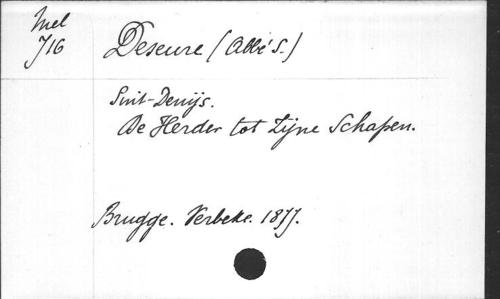 Mel
716
Deseure (Abbé S.)
Sint-Denijs.
De Herder tot Zijne Schapen.
Brugge. Verbeke. 1877.